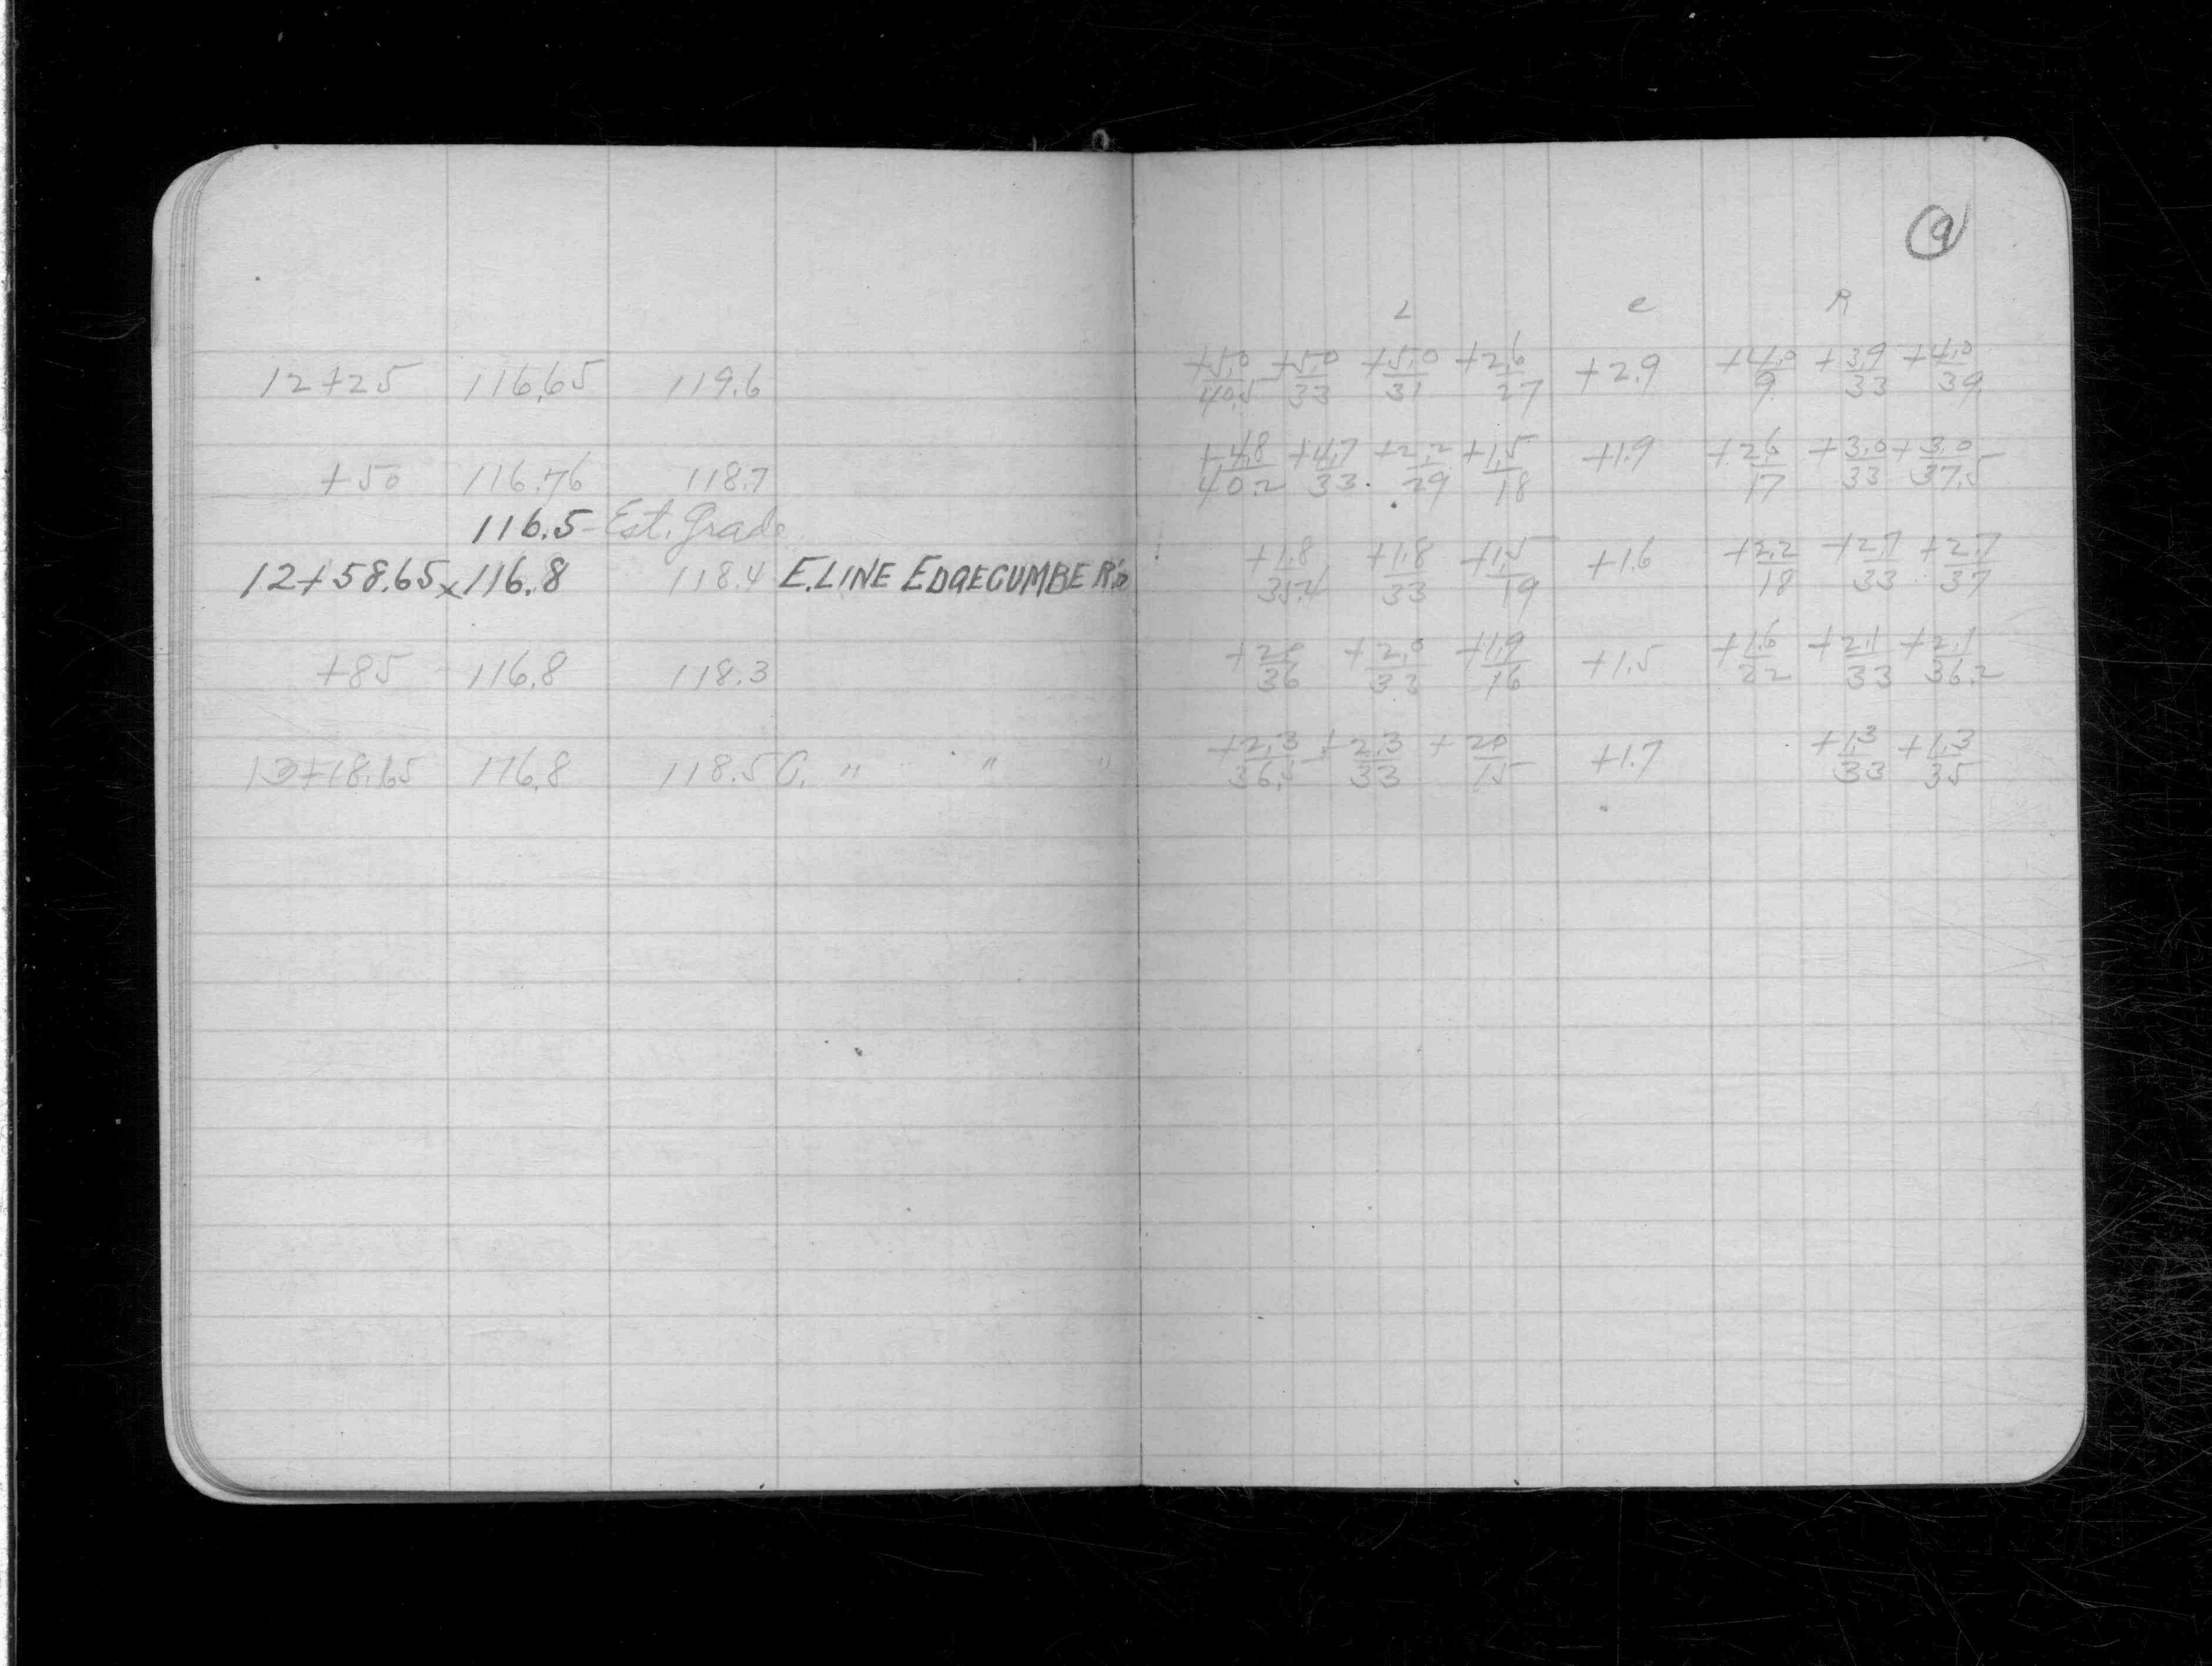 9
L C R
12+25 116.65 119.6 +5.0/40.5 +5.0/33 +5.0/31 +2.6/27 +2.9 +4.0/9 +3.9/33 +4.0/39
+50 116.76 118.7 +4.8/40.2 +4.7/33 +2.2/29 +1.5/18 +1.9 +2.6/17 +3.0/33 +3.0/37.5
116.5 - Est. Grade
12+58.65 x 116.8 118.4 E. LINE EDGECUMBE R'D +1.8/35.4 +1.8/33 +1.5/19 +1.6 +2.2/18 +2.7/33 +2.7/37
+85 116.8 118.3 +2.0/36 +2.0/33 +1.9/16 +1.5 +1.6/22 +2.1/33 +2.1/36.2
13+18.65 116.8 118.5 C. " " " +2.3/36.5 +2.3/33 +2.0/15 +1.7 +1.3/33 +1.3/35